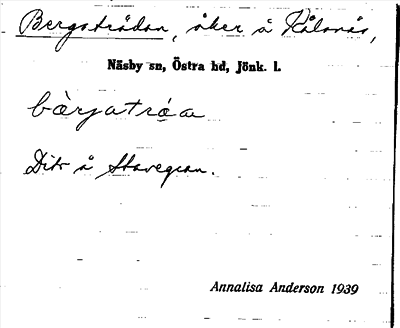 Bergsträdan, åker å Kålvnäs,
Näsby sn, Östra hd, Jönk. l.
bærjatrǽa
Dito å Stavegran.
Annalisa Anderson 1939